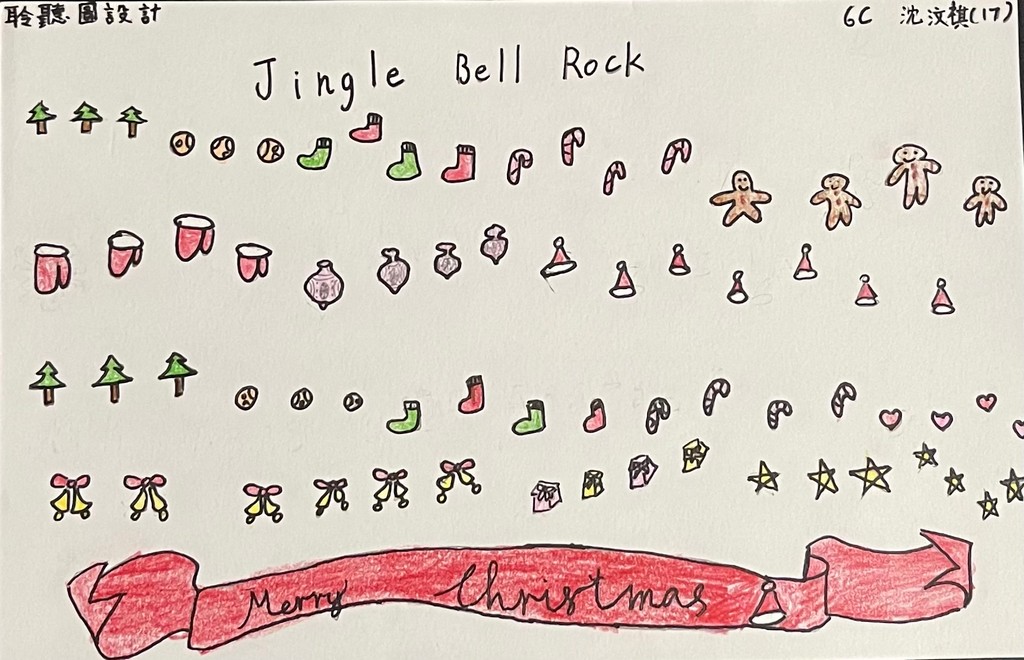 聆聽圖設計
6C 沈汶祺(17)
Jingle Bell Rock
Merry Christmas